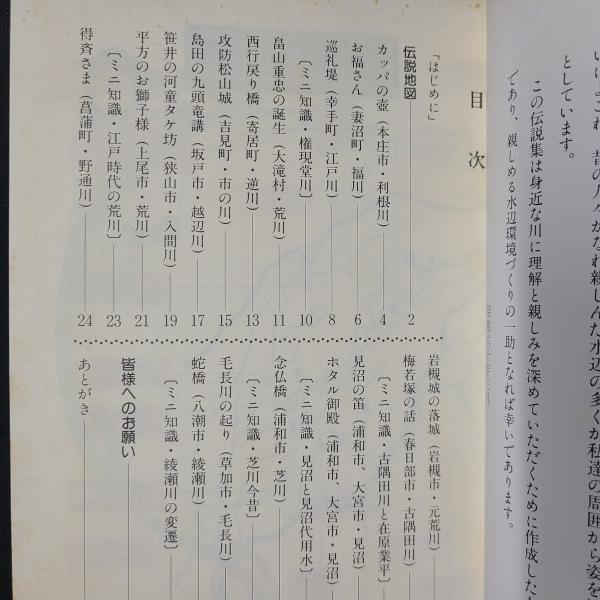 いに、これ 昔の人々がなれ親しんだ水辺の多くが私達の周囲から姿を
としています。
この伝説集は身近な川に理解と親しみを深めていただくために作成した
であり、親しめる水辺環境づくりの一助となれば幸いであります。
目次
「はじめに」
伝説地図 2
カッパの壺（本庄市・利根川） 4
お福さん（妻沼町・福川） 6
巡礼堤（幸手町・江戸川） 8
〔ミニ知識・権現堂川〕 10
畠山重忠の誕生（大滝村・荒川） 11
西行戻り橋（寄居町・逆川） 13
攻防松山城（吉見町・市の川） 15
島田の九頭竜講（坂戸市・越辺川） 17
笹井の河童タケ坊（狭山市・入間川） 19
平方のお獅子様（上尾市・荒川） 21
〔ミニ知識・江戸時代の荒川〕 23
得斉さま（菖蒲町・野通川） 24
岩槻城の落城（岩槻市・元荒川）
梅若塚の話（春日部市・古隅田川）
〔ミニ知識・古隅田川と在原業平〕
見沼の笛（浦和市、大宮市・見沼）
ホタル御殿（浦和市、大宮市・見沼）
〔ミニ知識・見沼と見沼代用水〕
念仏橋（浦和市・芝川）
〔ミニ知識・芝川今昔〕
毛長川の起り（草加市・毛長川）
蛇橋（八潮市・綾瀬川）
〔ミニ知識・綾瀬川の変遷〕
皆様へのお願い
あとがき